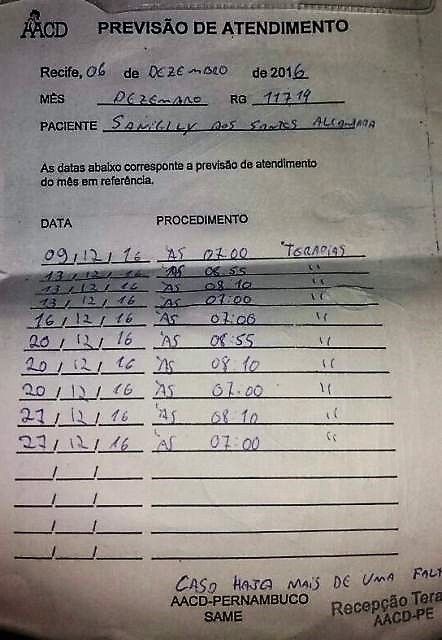 AACD PREVISÃO DE ATENDIMENTO
Recife, 06 de DEZEMBRO de 2016
MÊS DEZEMBRO RG 11719
PACIENTE SANIELLY DOS SANTOS ALCANTARA
As datas abaixo corresponte a previsão de atendimento
do mês em referência.
DATA PROCEDIMENTO
09/12/16 ÀS 07:00 TERAPIAS
13/12/16 ÀS 08:55 "
13/12/16 ÀS 08:10 "
13/12/16 ÀS 07:00 "
16/12/16 ÀS 07:00 "
20/12/16 ÀS 08:55 "
20/12/16 ÀS 08:10 "
20/12/16 ÀS 07:00 "
27/12/16 ÀS 08:10 "
27/12/16 ÀS 07:00 "
/ /
/ /
/ /
/ /
CASO HAJA MAIS DE UMA FALT
AACD-PERNAMBUCO
SAME
Recepção Tera
AACD-PE